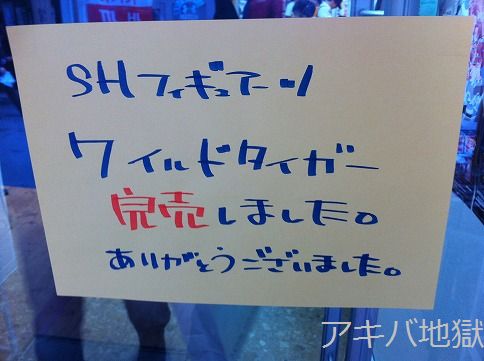 SHフィギュアーツ
ワイルドタイガー
完売しました。
ありがとうございました。
アキバ地獄